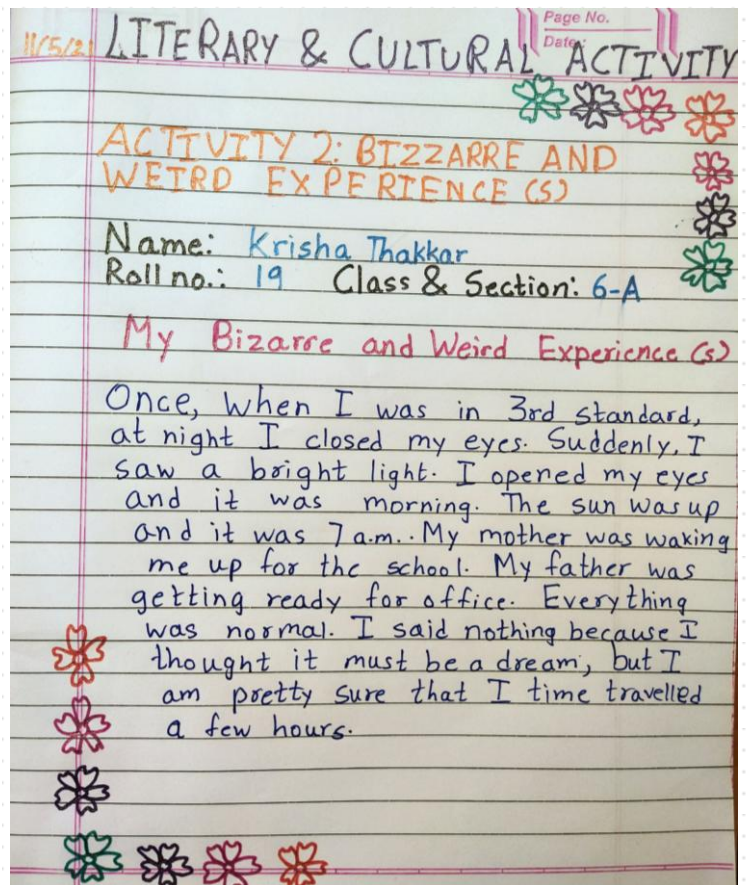 Page No.
Date:
11/5/21 LITERARY & CULTURAL ACTIVITY
ACTIVITY 2: BIZZARRE AND
WEIRD EXPERIENCE (S)
Name: Krisha Thakkar
Roll no.: 19 Class & Section: 6-A
My Bizarre and Weird Experience (s)
Once, when I was in 3rd standard,
at night I closed my eyes. Suddenly, I
saw a bright light. I opened my eyes
and it was morning. The sun was up
and it was 7 a.m.. My mother was waking
me up for the school. My father was
getting ready for office. Everything
was normal. I said nothing because I
thought it must be a dream, but I
am pretty sure that I time travelled
a few hours.